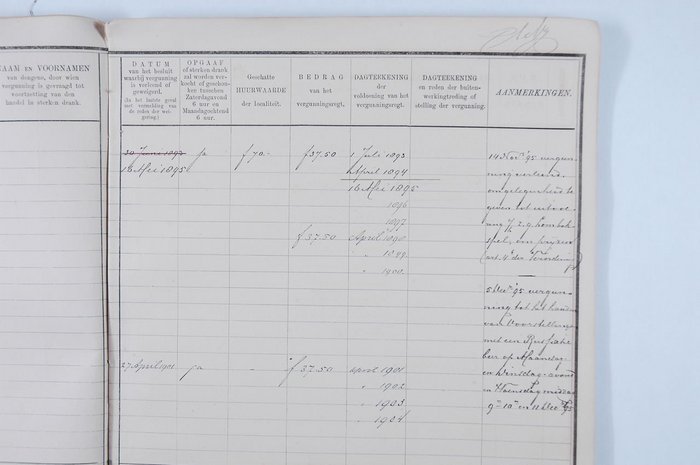 NAAM EN VOORNAMEN
van dengene, door wien
vergunning is gevraagd tot
voortzetting van den
handel in sterken drank.
DATUM
van het besluit
waarbij vergunning
is verleend of
geweigerd.
(In het laatste geval
met vermelding van
de reden der wei-
gering.)
OPGAAF
of sterken drank
zal worden ver-
kocht of geschon-
ken tusschen
Zaterdagavond
6 uur en
Maandagochtend
6 uur.
Geschatte
HUURWAARDE
der localiteit.
BEDRAG
van het
vergunningsregt.
DAGTEEKENING
der
voldoening van het
vergunningsregt.
DAGTEEKENING
en reden der buiten-
werkingtreding of
stelling der vergunning.
AANMERKINGEN.
30 Juni 1893 ja f 70.- f 37.50 1 Juli 1893
18 Mei 1895 April 1894
18 Mei 1895
1896
1897
f 37.50 April 1898
" 1899
" 1900
14 Nov. '95 vergun-
ning verleend
om gelegenheid te
geven tot uitoe
spel, om prijzen
art. 4 der Verordening
5 Dec. '95 vergun-
ning tot het houden
van Voorstellingen
met een Russische
beer op Maandag
en Dinsdag-avond
en Woensdagmiddag
9en 10en en 11 Dec. '95
27 April 1901 ja - f 37.50 april 1901
" 1902
" 1903
" 1904